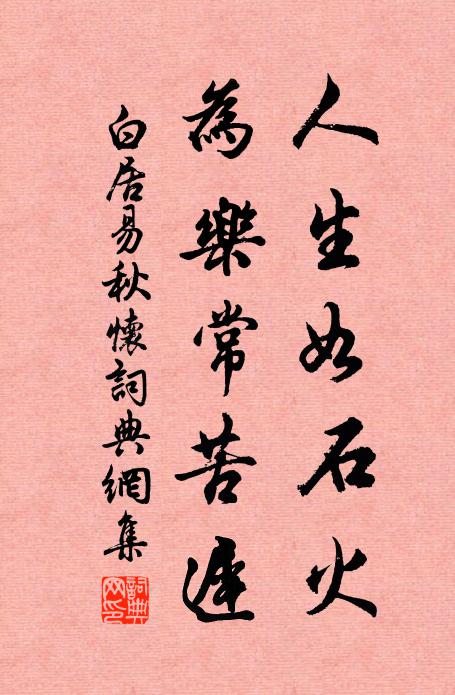 人生如石火
為樂常苦遲
白居易秋懷詞典網集
詞典網印